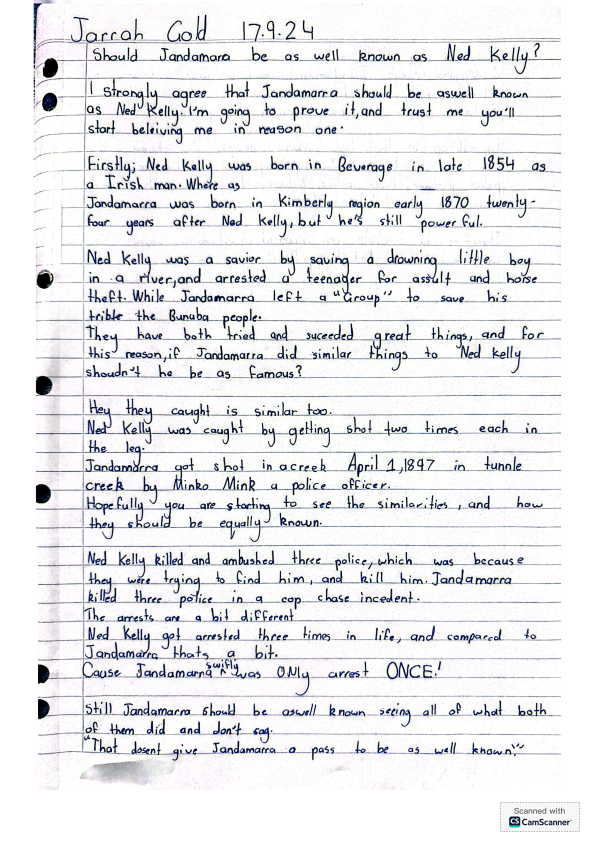 Jarrah Gold 17.9.24
Should Jandamara be as well known as Ned Kelly?
I strongly agree that Jandamarra should be aswell known
as Ned Kelly. I'm going to prove it, and trust me you'll
start beleiving me in reason one.
Firstly; Ned Kelly was born in Beverage in late 1854 as
a Irish man. Where as
Jandamarra was born in Kimberly region early 1870 twenty-
four years after Ned Kelly, but he's still powerful.
Ned Kelly was a savior by saving a drowning little boy
in a river, and arrested a teenager for assult and horse
theft. While Jandamarra left a "Group" to save his
trible the Bunuba people.
They have both tried and suceeded great things, and for
this reason, if Jandamarra did similar things to Ned Kelly
shoudn't he be as famous?
Hey they caught is similar too.
Ned Kelly was caught by getting shot two times each in
the leg.
Jandamarra got shot in a creek April 1, 1897 in tunnle
creek by Minko Mink a police officer.
Hopefully you are starting to see the similarities, and how
they should be equally known.
Ned Kelly killed and ambushed three police, which was because
they were trying to find him, and kill him. Jandamarra
killed three police in a cop chase incedent.
The arrests are a bit different
Ned Kelly got arrested three times in life, and compared to
Jandamarra thats a bit.
Cause Jandamarra swifly was ONly arrest ONCE!
Still Jandamarra should be aswell known seeing all of what both
of them did and don't say.
"That dosent give Jandamarra a pass to be as well known."
Scanned with
CS CamScanner